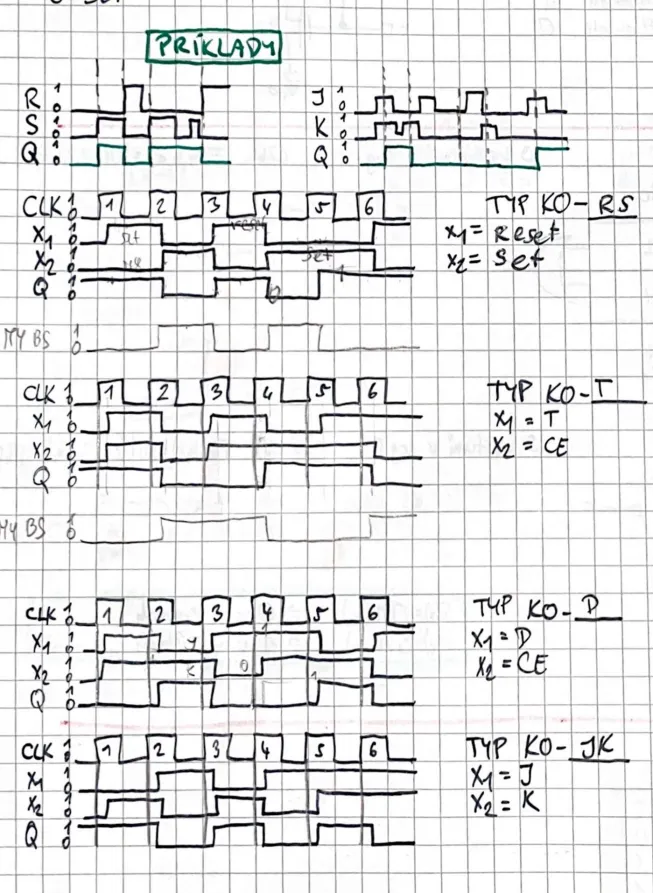 PŘÍKLADY
R 1 0
S 1 0
Q 1 0
J 1 0
K 1 0
Q 1 0
CLK 1 0 1 2 3 4 5 6
X1 1 0 set reset
X2 1 0 set
Q 1 0 0 1
MY BS 1 0
TYP KO- RS
X1 = Reset
X2 = Set
CLK 1 0 1 2 3 4 5 6
X1 1 0
X2 1 0
Q 1 0
MY BS 1 0
TYP KO- T
X1 = T
X2 = CE
CLK 1 0 1 2 3 4 5 6
X1 1 0 J 1
X2 1 0 K 0
Q 1 0 1
TYP KO- D
X1 = D
X2 = CE
CLK 1 0 1 2 3 4 5 6
X1 1 0
X2 1 0
Q 1 0
TYP KO- JK
X1 = J
X2 = K